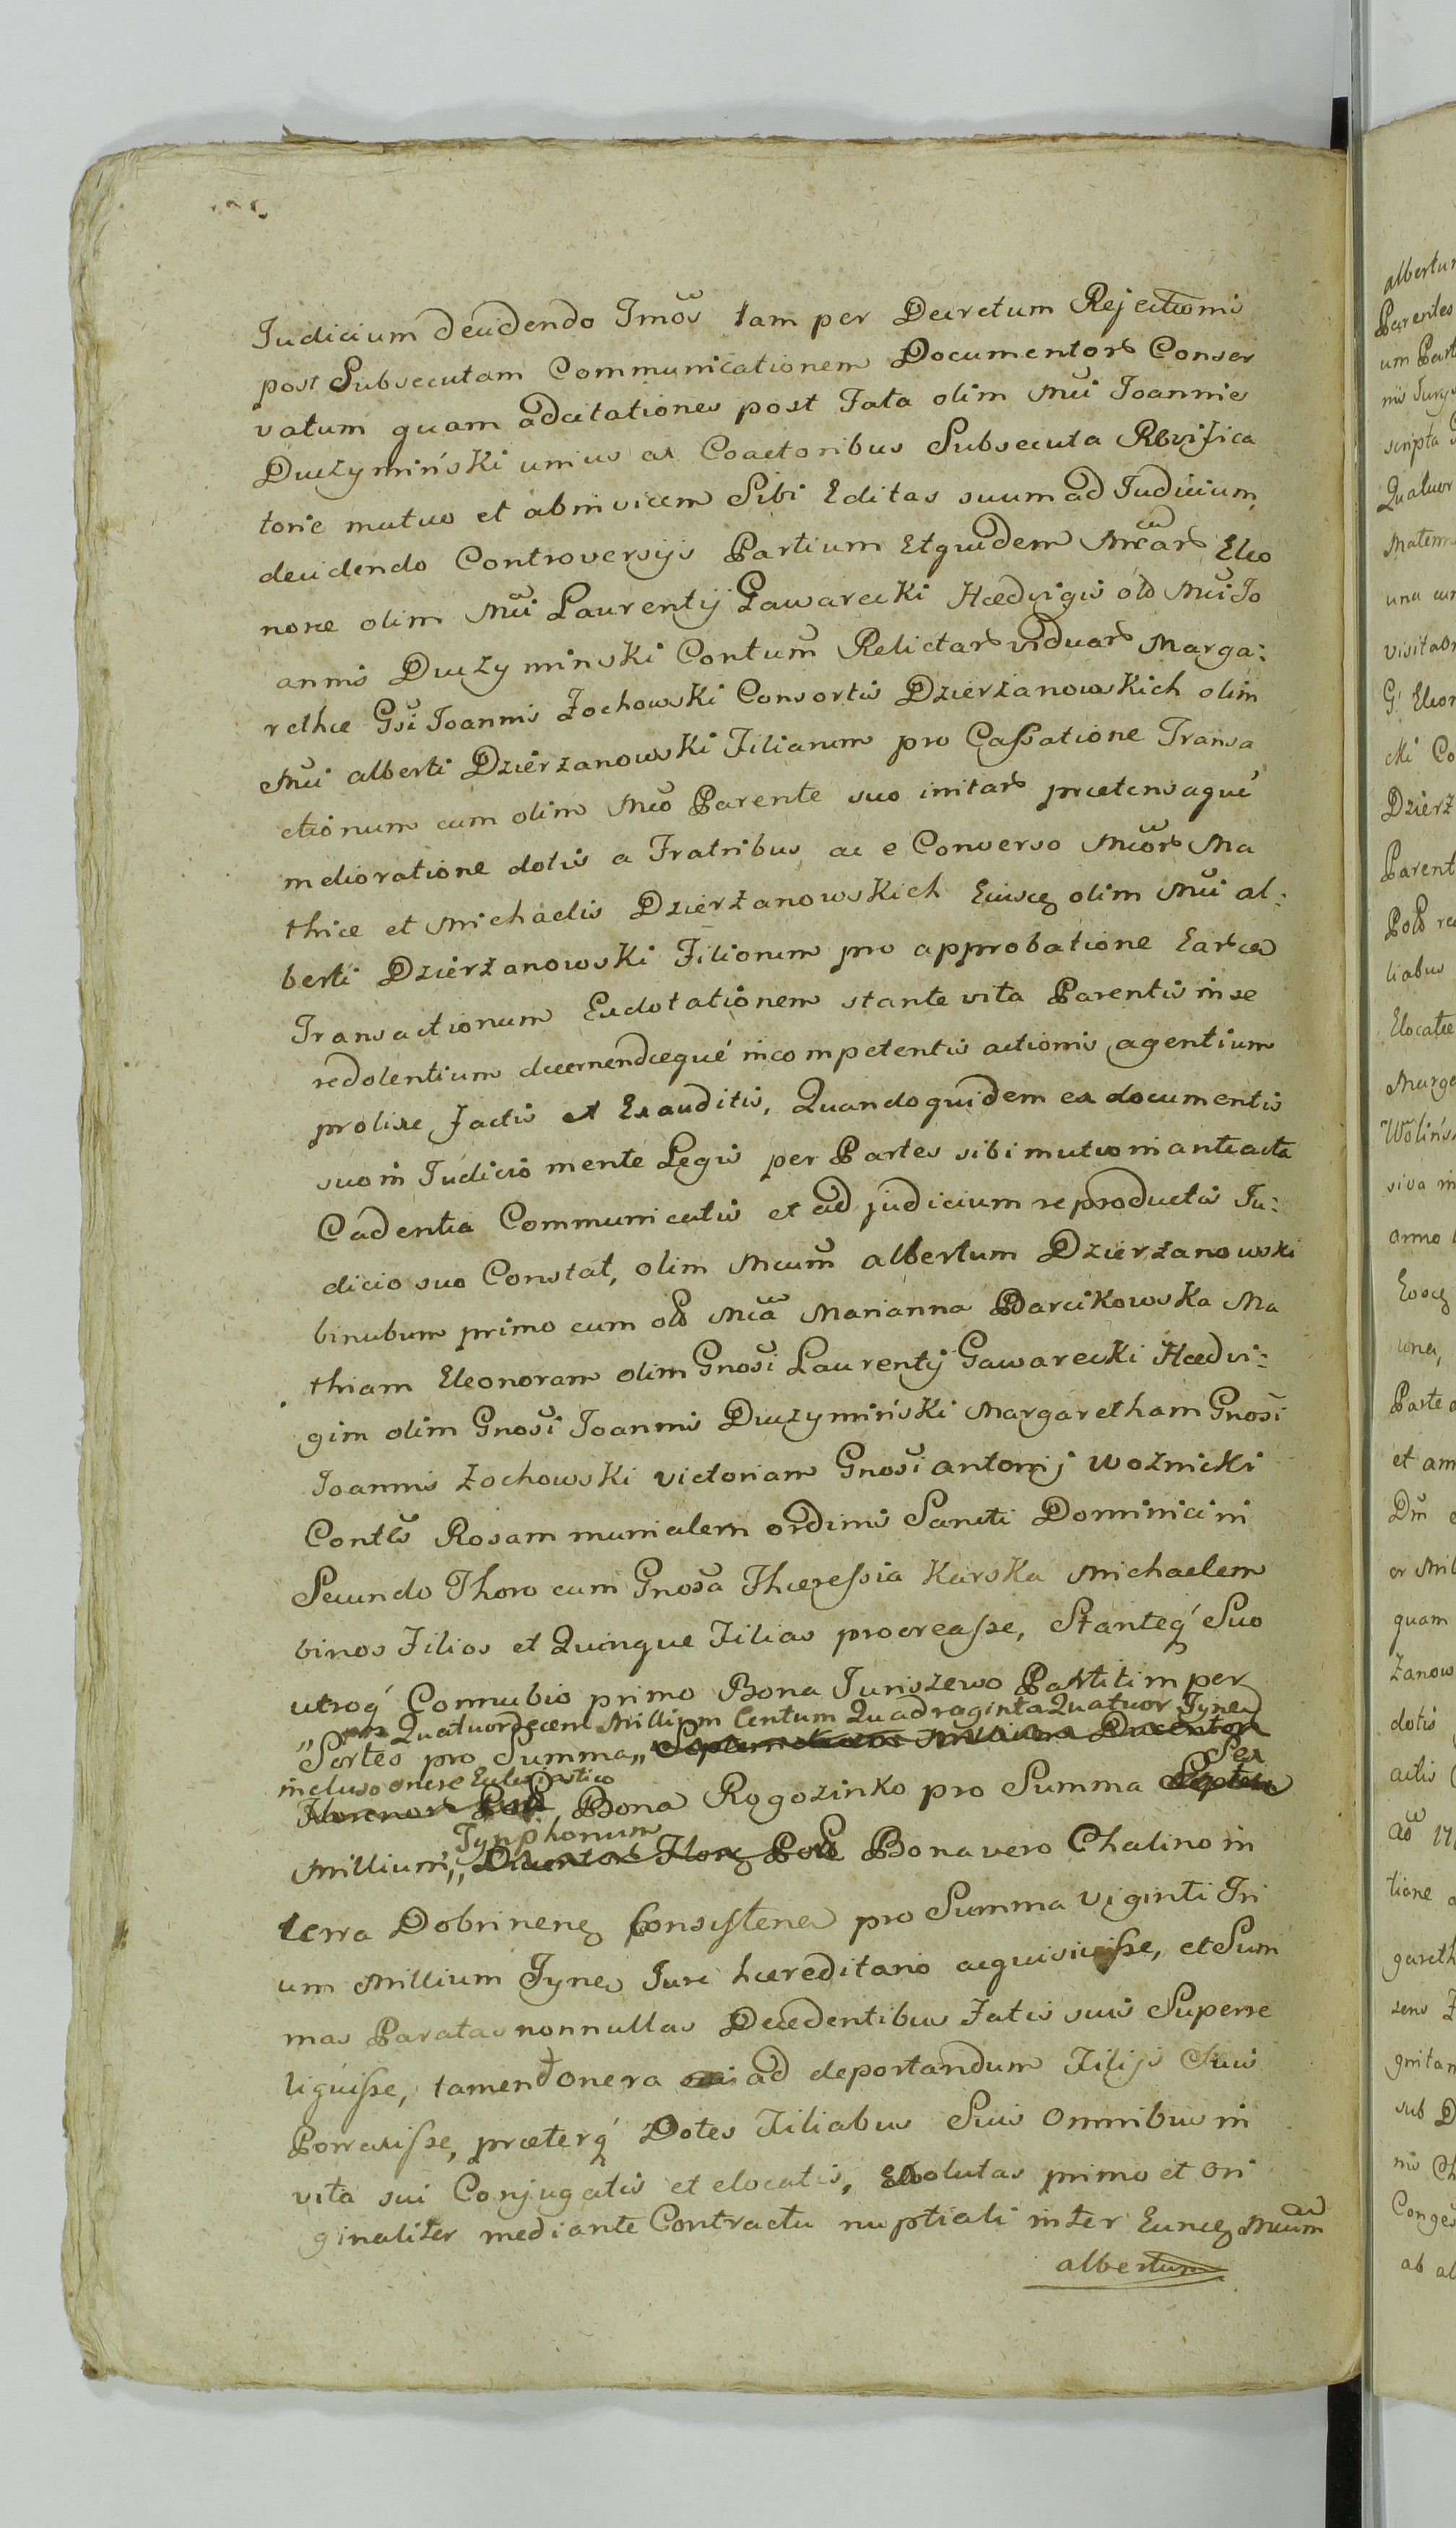 Judicium decidendo Jmõs tam per Decretum Rejectionis
post Subsecutam Communicationem Documentor Conser
vatum quam adcitationes post Fata olim Mũi Joannis
Duczymiński unius ex Coactoribus Subsecuta Reviſica
torie mutuo et abinvicem Sibi Editas suum ad Judicium,
decidendo Controversijs Partium Etquidem Mrcar Eleo
noræ olim Mũi Laurentij Gawarecki Hædvigis olo Mũi Jo
annis Duczyminski Contum̃ Relictar viduar Marga:
rethæ Gsi Joannis Żochowski Consortis Dzierżanowskich olim
Mũi alberti Dzierżanowski Filiarum pro Caſsatione Transa
ctionum cum olim Mco Parente suo initar prætensaque
melioratione dotis a Fratribus, ac e Converso Mcor Ma
thiæ et Michaelis Dzierżanowskich Ejusq olim Mũi al:
berti Dzierżanowski Filiorum pro approbatione Earcea
Transactionum Exdotationem stante vita Parentis in se
redolentium decernendæqué incompetentis actionis agentium
prolixe factis et Exauditis, Quandoquidem ex documentis
suo in Judicio mente Legis per Partes sibi mutuo in anteacta
Cadentia Communicatis et ad judicium reproductis Ju:
dicio suo Constat, olim Mcum̃ albertum Dzierżanowski
binubum primo cum olo Mca Marianna Barcikowska Ma
thiam Eleonoram olim Gnosi Laurentij Gawarecki Hædvi:
gim olim Gnosi Joannis Duczymiński Margaretham Gnosi
Joannis Żochowski victoriam Gnosi antonij Woźnicki
Contes Rosam monialem ordinis Sancti Dominici in
Secundo Thoro cum Gnosa Thæreſsia Karska Michaelem
binos Filios et Quinque Filias procreaſse, Stanteq́ Suo
utroq́ Connubio primo Bona Juriszewo Partitim per
„ Quatuordecem Millium Centum Quadraginta Quatuor Tynea
Sortes pro Summa „ Septemdecim Millium Ducentor
incluso onere Eclesiastico
Florenor Pol Bona Rogozinko pro Summa Septem Sex
Tynphonum
Millium, „ Ducentor Flor Pol Bona vero Chalino in
terra Dobrinenq Consiſtena pro Summa viginti Tri
um Millium Tynea Jure hæreditario acquisiviſse, et Sum
mas Paratas nonnullas Decedentibus Fatis suis Superre
liquiſse, tamen onera ad deportandum Filijs Suis
Porrexiſse, præterq́ Dotes Filiabus Suis omnibus in
vita sui Conjugatis et elocatis, Exolutas primo et ori
ginaliter mediante Contractu nuptiali inter Euncq Mcum
albertum